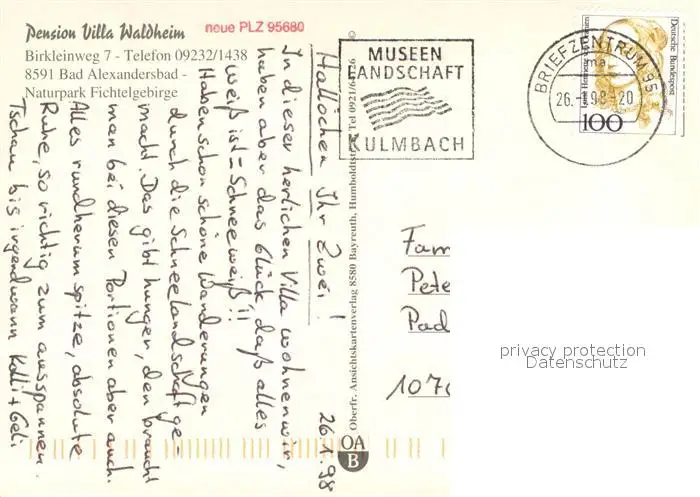 Pension Villa Waldheim
neue PLZ 95680
Birkleinweg 7 - Telefon 09232/1438
8591 Bad Alexandersbad -
Naturpark Fichtelgebirge
26.1.98
Hallöchen Ihr Zwei!
In dieser herlichen Villa wohnen wir,
haben aber das Glück, daß alles
weiß ist = Schneeweiß!!
Haben schon schöne Wanderungen
durch die Schneelandschaft ge-
macht. Das gibt hunger, den braucht
man bei diesen Portionen aber auch.
Alles rundherum spitze, absolute
Ruhe, so richtig zum ausspannen.
Tschau bis irgendwann Kalli + Geli
© Oberfr. Ansichtskartenverlag 8580 Bayreuth, Humboldtstr. Tel 0921/64726
OA
B
MUSEEN
LANDSCHAFT
KULMBACH
BRIEFZENTRUM 95
ma
26.-1.98-20
Deutsche Bundespost
100
Fam
Pete
Pad
107
privacy protection
Datenschutz